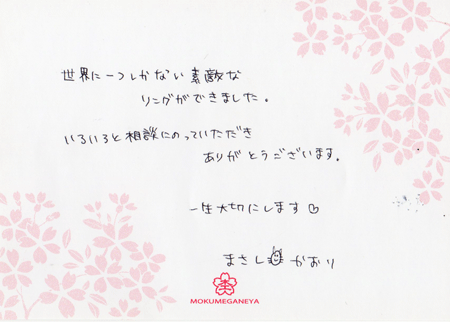 世界に一つしかない素敵な
リングができました。
いろいろと相談にのっていただき
ありがとうございます。
一生大切にします♡
まさし かおり
MOKUMEGANEYA